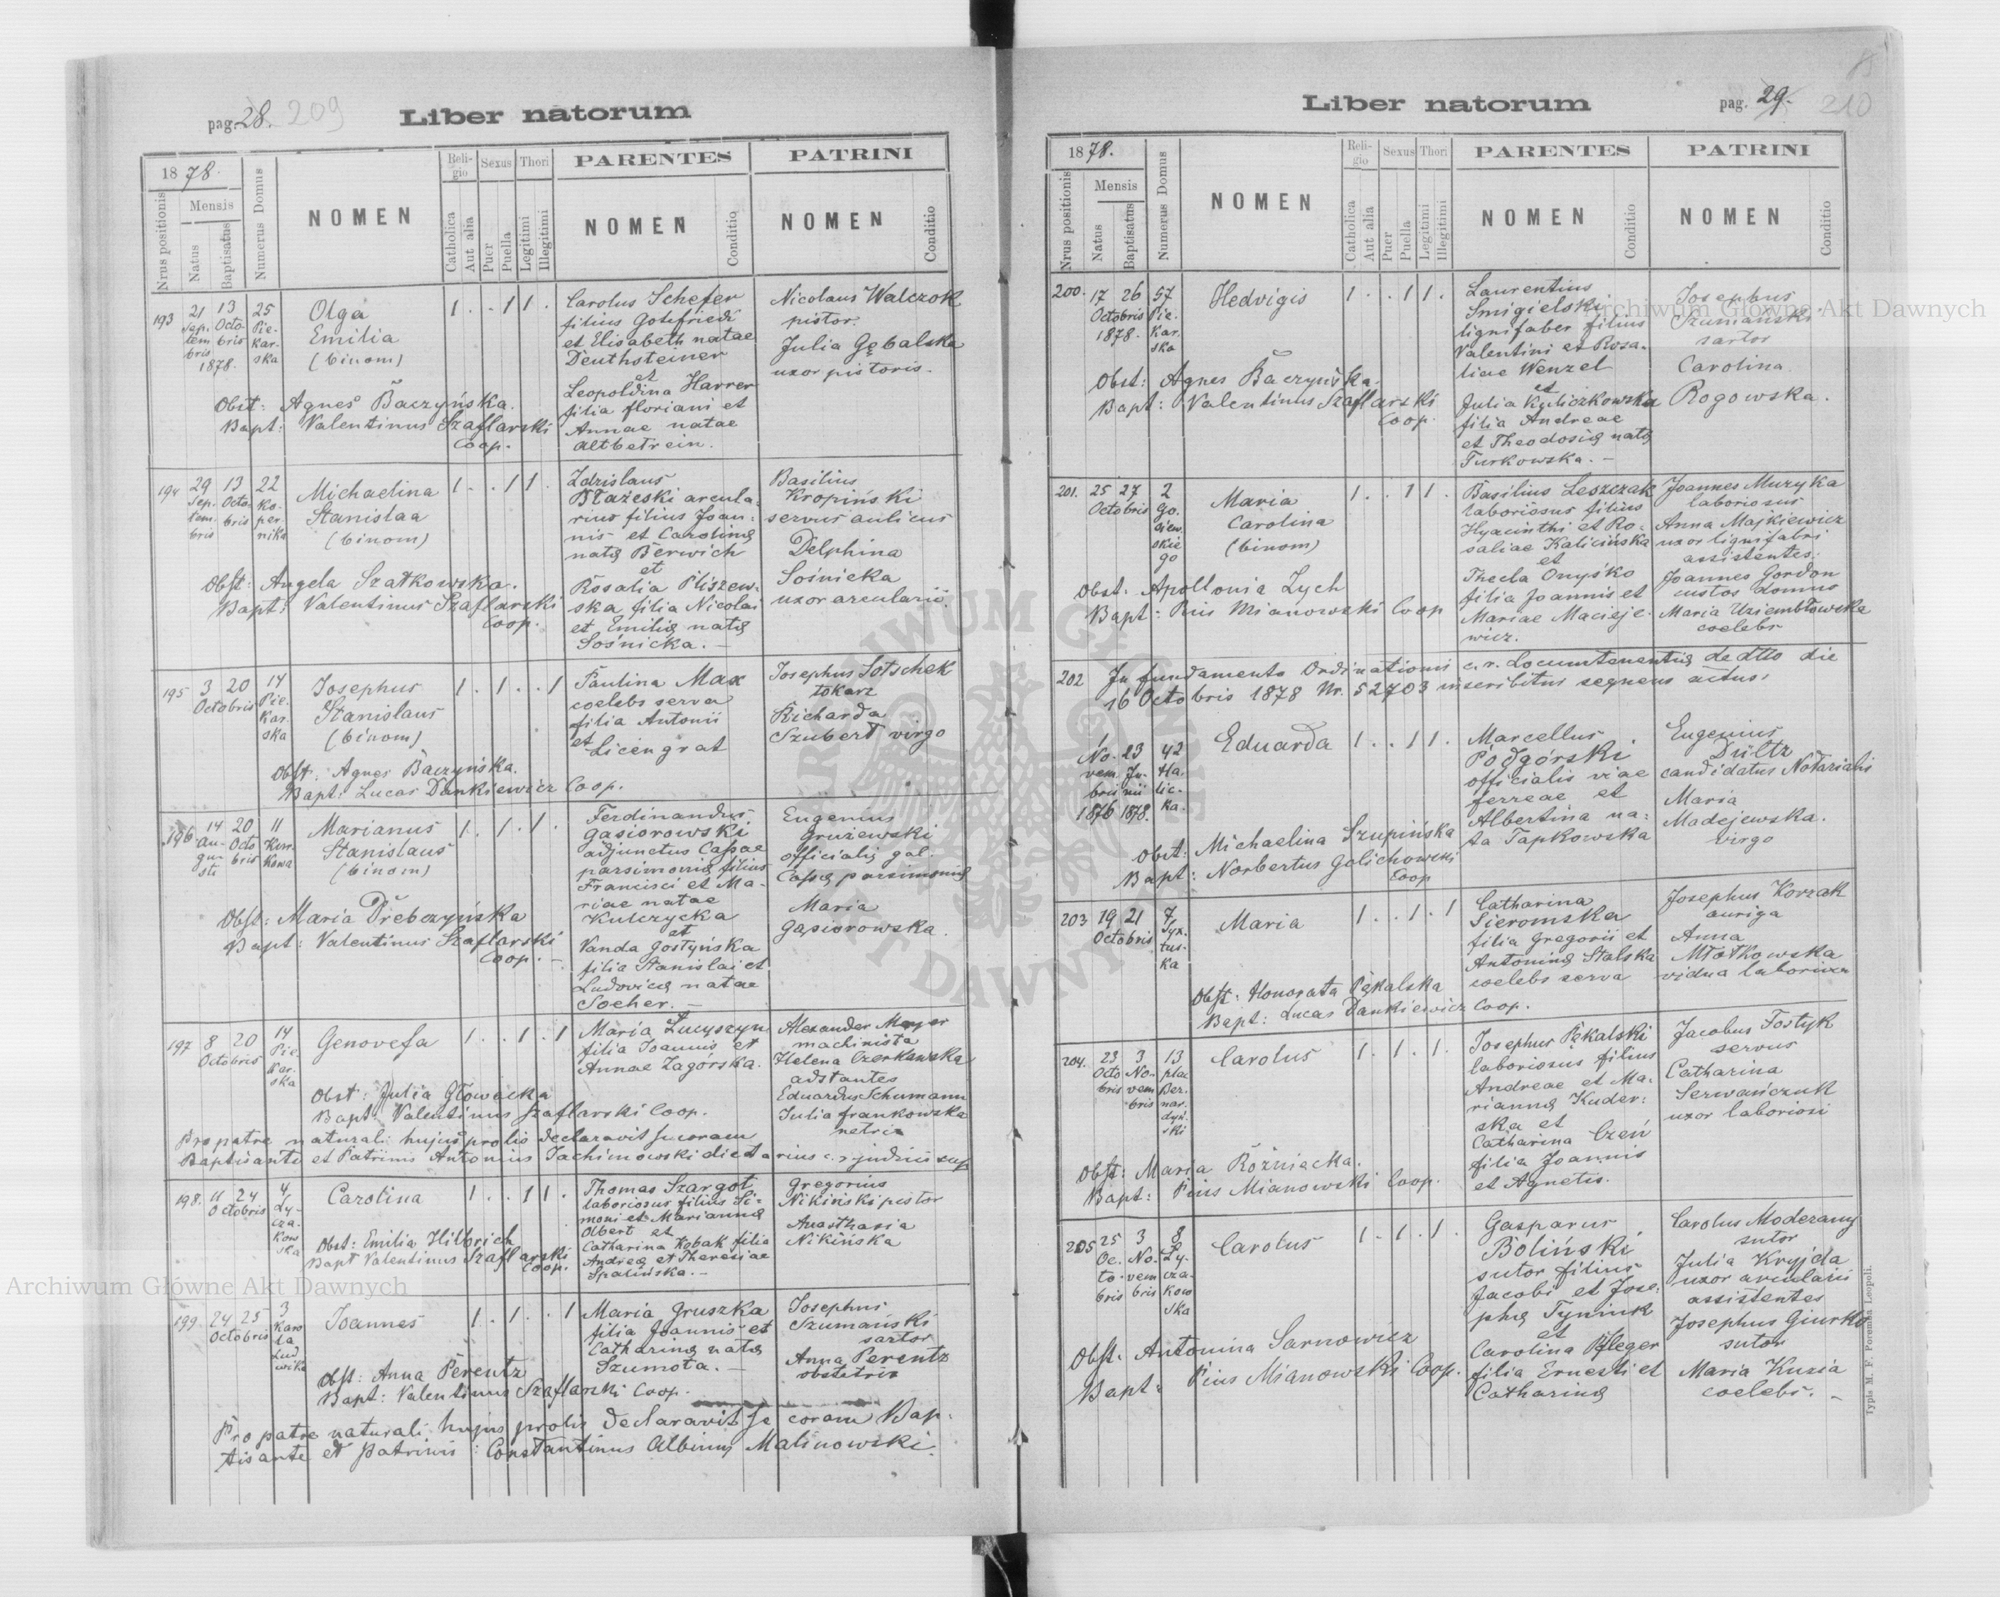 pag. 28. 209
Liber natorum
1878.
Nrus positionis
Mensis
Natus
Baptisatus
Numerus Domus
NOMEN
Religio
Catholica
Aut alia
Sexus
Puer
Puella
Thori
Legitimi
Illegitimi
PARENTES
NOMEN
Conditio
PATRINI
NOMEN
Conditio
193
21 Septembris 1878.
13 Octobris
25 Piekarska
Olga
Emilia
(binom)
1 . . 1 1 .
Carolus Schefer
filius Gottfriedi
et Elisabeth natae
Deuthsteiner
et
Leopoldina Harrer
filia floriani et
Annae natae
Altbetrein.
Nicolaus Walczok
pistor.
Julia Gębalska
uxor pistoris.
Obst: Agnes Baczyńska.
Bapt: Valentinus Szaflarski
Coop.
194
29 Septembris
13 Octobris
22 Kopernika
Michaelina
Stanislaa
(binom)
1 . . 1 1 .
Zdzislaus
Błażeski arcula-
rius filius Joan-
nis et Carolinę
natę Berwich
et
Rosalia Pliszew-
ska filia Nicolai
et Emilię natę
Sośnicka. —
Basilius
Kropiński
servus aulicus
Delphina
Sośnicka
uxor arcularii.
Obst: Angela Szatkowska.
Bapt: Valentinus Szaflarski
Coop.
195
3 Octobris
20
14 Piekarska
Josephus
Stanislaus
(binom)
1 . 1 . . 1
Paulina Max
coelebs serva
filia Antonii
et Licengrat
Josephus Sotschek
tokarz
Richarda
Szubert virgo
Obst: Agnes Baczyńska.
Bapt: Lucas Dankiewicz Coop.
196
14 Augusti
20 Octobris
11
Marianus
Stanislaus
(binom)
1 . 1 . 1 .
Ferdinandus
Gąsiorowski
adjunctus Cassae
parsimonię filius
Francisci et Ma-
riae natae
Kulczycka
et
Vanda Gostyńska
filia Stanislai et
Ludovicę natae
Socher. —
Eugenius
Grużewski
officialis gal.
Cassę parsimonię
Maria
Gąsiorowska
Obst: Maria Drebczyńska
Bapt: Valentinus Szaflarski
Coop. —
197
8 Octobris
20
14 Piekarska
Genovefa
1 . . 1 . 1
Maria Łucyszyn
filia Joannis et
Annae Zagórska.
Alexander Mayer
machinista
Helena Czerkawska
adstantes
Eduardus Schumann
Julia frankowska
Obst: Julia Głowacka
Bapt: Valentinus Szaflarski Coop.
Pro patre naturali hujus prolis declaravit se coram
Baptisante et Patrinis Antonius Jachimowski dietarius c. r. judicii
198.
11 Octobris
24
4 Łyczakowska
Carolina
1 . . 1 1 .
Thomas Szargot
laboriosus filius Si-
moni et Mariannę
Olbert et
Catharina Kobak filia
Andreę et Theresiae
Spalińska. —
Gregorius
Nikiński pistor
Anasthasia
Nikińska
Obst: Emilia Hilbrich
Bapt Valentinus Szaflarski
Coop.
199.
24 Octobris
25
3 Karola Ludwika
Joannes
1 . 1 . . 1
Maria Gruszka
filia Joannis et
Catharinę natę
Szumota. —
Josephus
Szumański
sartor
Anna Perentz
obstetrix
Obst: Anna Perentz
Bapt: Valentinus Szaflarski Coop.
Pro patre naturali hujus prolis declaravit se coram Bap-
tisante et patrinis: Constantinus Albinus Malinowski.
pag. 29. 210
Liber natorum
1878.
Nrus positionis
Mensis
Natus
Baptisatus
Numerus Domus
NOMEN
Religio
Catholica
Aut alia
Sexus
Puer
Puella
Thori
Legitimi
Illegitimi
PARENTES
NOMEN
Conditio
PATRINI
NOMEN
Conditio
200.
17 Octobris 1878.
26
57 Piekarska
Hedvigis
1 . . 1 1 .
Laurentius
Smigielski
lignifaber filius
Valentini et Rosa-
liae Wenzel
et
Julia Kuliczkowska
filia Andreae
et Theodosię natę
Turkowska. —
Josephus
Szumański
sartor
Carolina
Rogowska.
Obst: Agnes Baczyńska.
Bapt: Valentinus Szaflarski
Coop.
201.
25 Octobris
27
2
Maria
Carolina
(binom)
1 . . 1 1 .
Basilius Leszczak
laboriosus filius
Hyacinthi et Ro-
saliae Kalicińska
et
Thecla Onyśko
filia Joannis et
Mariae Macieje-
wicz.
Joannes Muzyka
laboriosus
Anna Majkiewicz
uxor lignifabri
assistentes:
Joannes Gordon
custos domus
Maria Uziembłowska
coelebs
Obst: Apollonia Zych
Bapt: Pius Mianowski Coop
202
In fundamento Ordinationis c. r. Locumtenentię de dtto die
16 Octobris 1878 Nr. 52703 inscribitus sequens actus:
1 Novembris 1876
23 Junii 1878.
42 Halicka.
Eduarda
1 . . 1 1 .
Marcellus
Podgórski
officialis viae
ferreae et
Albertina na-
ta Tapkowska
Eugenius
Dültz
candidatus Notarialis
Maria
Madejewska.
virgo
Obst: Michaelina Szupińska
Bapt: Norbertus Golichowski
Coop
203
19 Octobris
21
7
Maria
1 . . 1 . 1
Catharina
Sieromska
filia Gregorii et
Antoninę Stalska
coelebs serva
Josephus Korzak
auriga
Anna
Młotkowska
vidua laboriosa
Obst: Honorata Pękalska
Bapt: Lucas Dankiewicz Coop.
204.
23 Octobris
3 Novembris
13 plac Bernardyński
Carolus
1 . 1 . 1 .
Josephus Pękalski
laboriosus filius
Andreae et Ma-
riannę Kuder-
ska et
Catharina Czeń
filia Joannis
et Agnetis.
Jacobus Tostyk
servus
Catharina
Serwańczuk
uxor laboriosi
Obst: Maria Rożniacka.
Bapt: Pius Mianowski Coop.
205
25 Octobris
3 Novembris
8 Łyczakowska
Carolus
1 . 1 . 1 .
Gasparus
Boliński
sutor filius
Jacobi et Jose-
phę Tyniuk
et
Carolina Pfleger
filia Ernesti et
Catharinę
Carolus Moderany
sutor
Julia Kryjda
uxor arcularii
assistentes
Josephus Giurko
sutor
Maria Kuzia
coelebs. —
Obst. Antonina Sarnowicz
Bapt: Pius Mianowski Coop.
Typis M. F. Poremba Leopoli.
Archiwum Główne Akt Dawnych
Archiwum Główne Akt Dawnych
ARCHIWUM GŁÓWNE AKT DAWNYCH